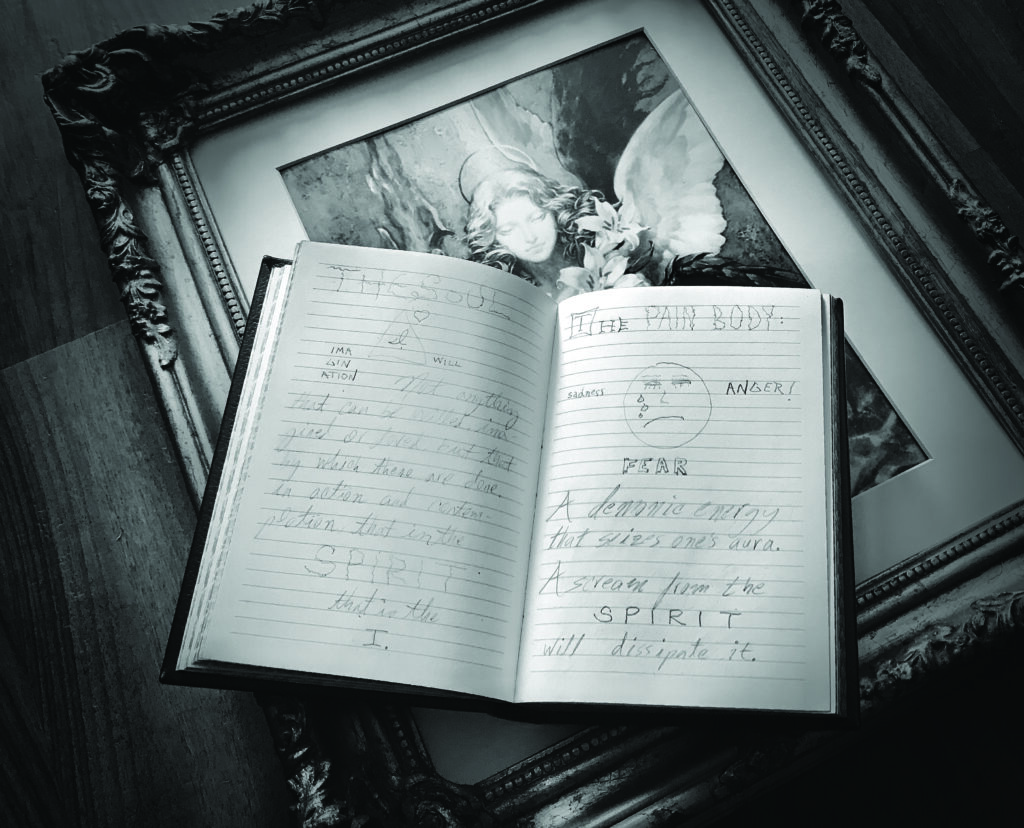 THE SOUL
IMA
GIN
ATION
WILL
Not anything
that can be worked ima
gined or loved but that
by which these are done.
in action and contem-
plation that in the
SPIRIT
that is the
I.
THE PAIN BODY:
sadness
ANGER!
FEAR
A demonic energy
that seizes one's aura.
A scream from the
SPIRIT
will dissipate it.